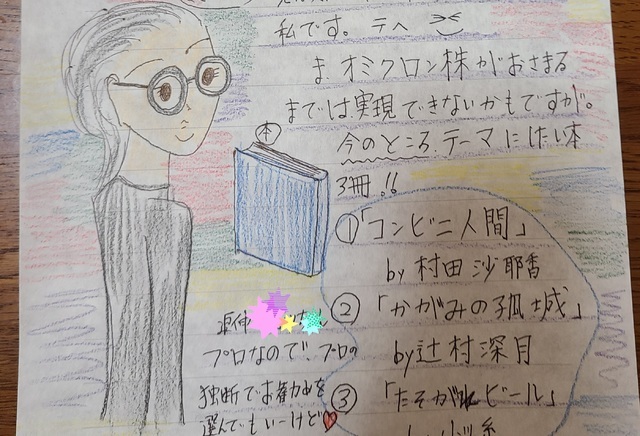 私です。テヘ
ま、オミクロン株がおさまる
までは実現できないかもですが。
今のところ、テーマにしたい本
3冊!!
本
①「コンビニ人間」
by 村田沙耶香
②「かがみの孤城」
by 辻村深月
③「たそがれビール」
プロなので、プロの
独断でお勧めを
選んでもいーけど♡